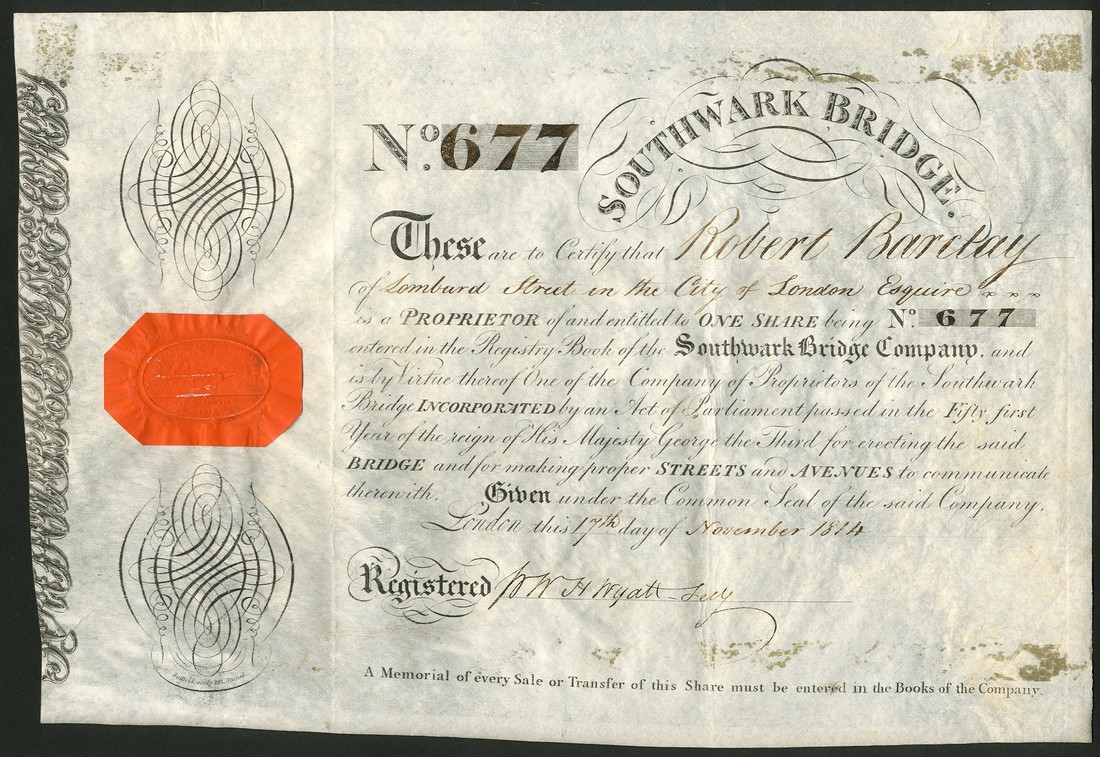 No. 677
SOUTHWARK BRIDGE.
These are to Certify that Robert Barclay
of Lombard Street in the City of London Esquire
is a PROPRIETOR of and entitled to ONE SHARE being No. 677
entered in the Registry Book of the Southwark Bridge Company, and
is by Virtue thereof One of the Company of Proprietors of the Southwark
Bridge INCORPORATED by an Act of Parliament passed in the Fifty first
Year of the reign of His Majesty George the Third for erecting the said
BRIDGE and for making proper STREETS and AVENUES to communicate
therewith. Given under the Common Seal of the said Company.
London this 17th day of November 1814
Registered W H Wyatt Secy
A Memorial of every Sale or Transfer of this Share must be entered in the Books of the Company.